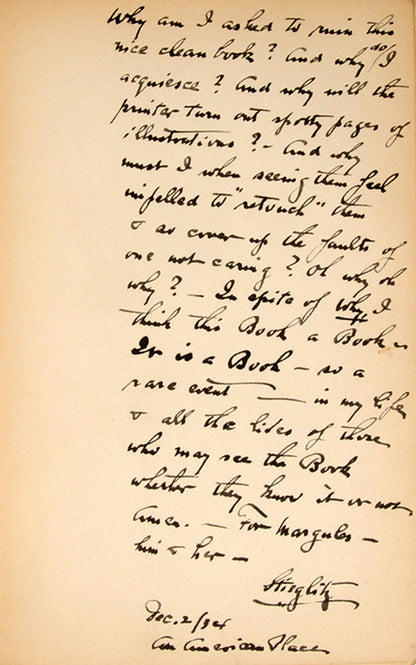 Why am I asked to ruin this
nice clean book? And why do I
acquiesce? And why will the
printer turn out spotty pages of
illustrations? — And why
must I when seeing them feel
impelled to "retouch" them
& so cover up the faults of
one not caring? Oh why oh
why? — In spite of why I
think this Book a Book —
It is a Book — so a
rare event — in my life
& all the lides of those
who may see the Book
whether they know it or not
Amen. — For Margules —
him & her —
Stieglitz
Dec. 2/34
An American Place